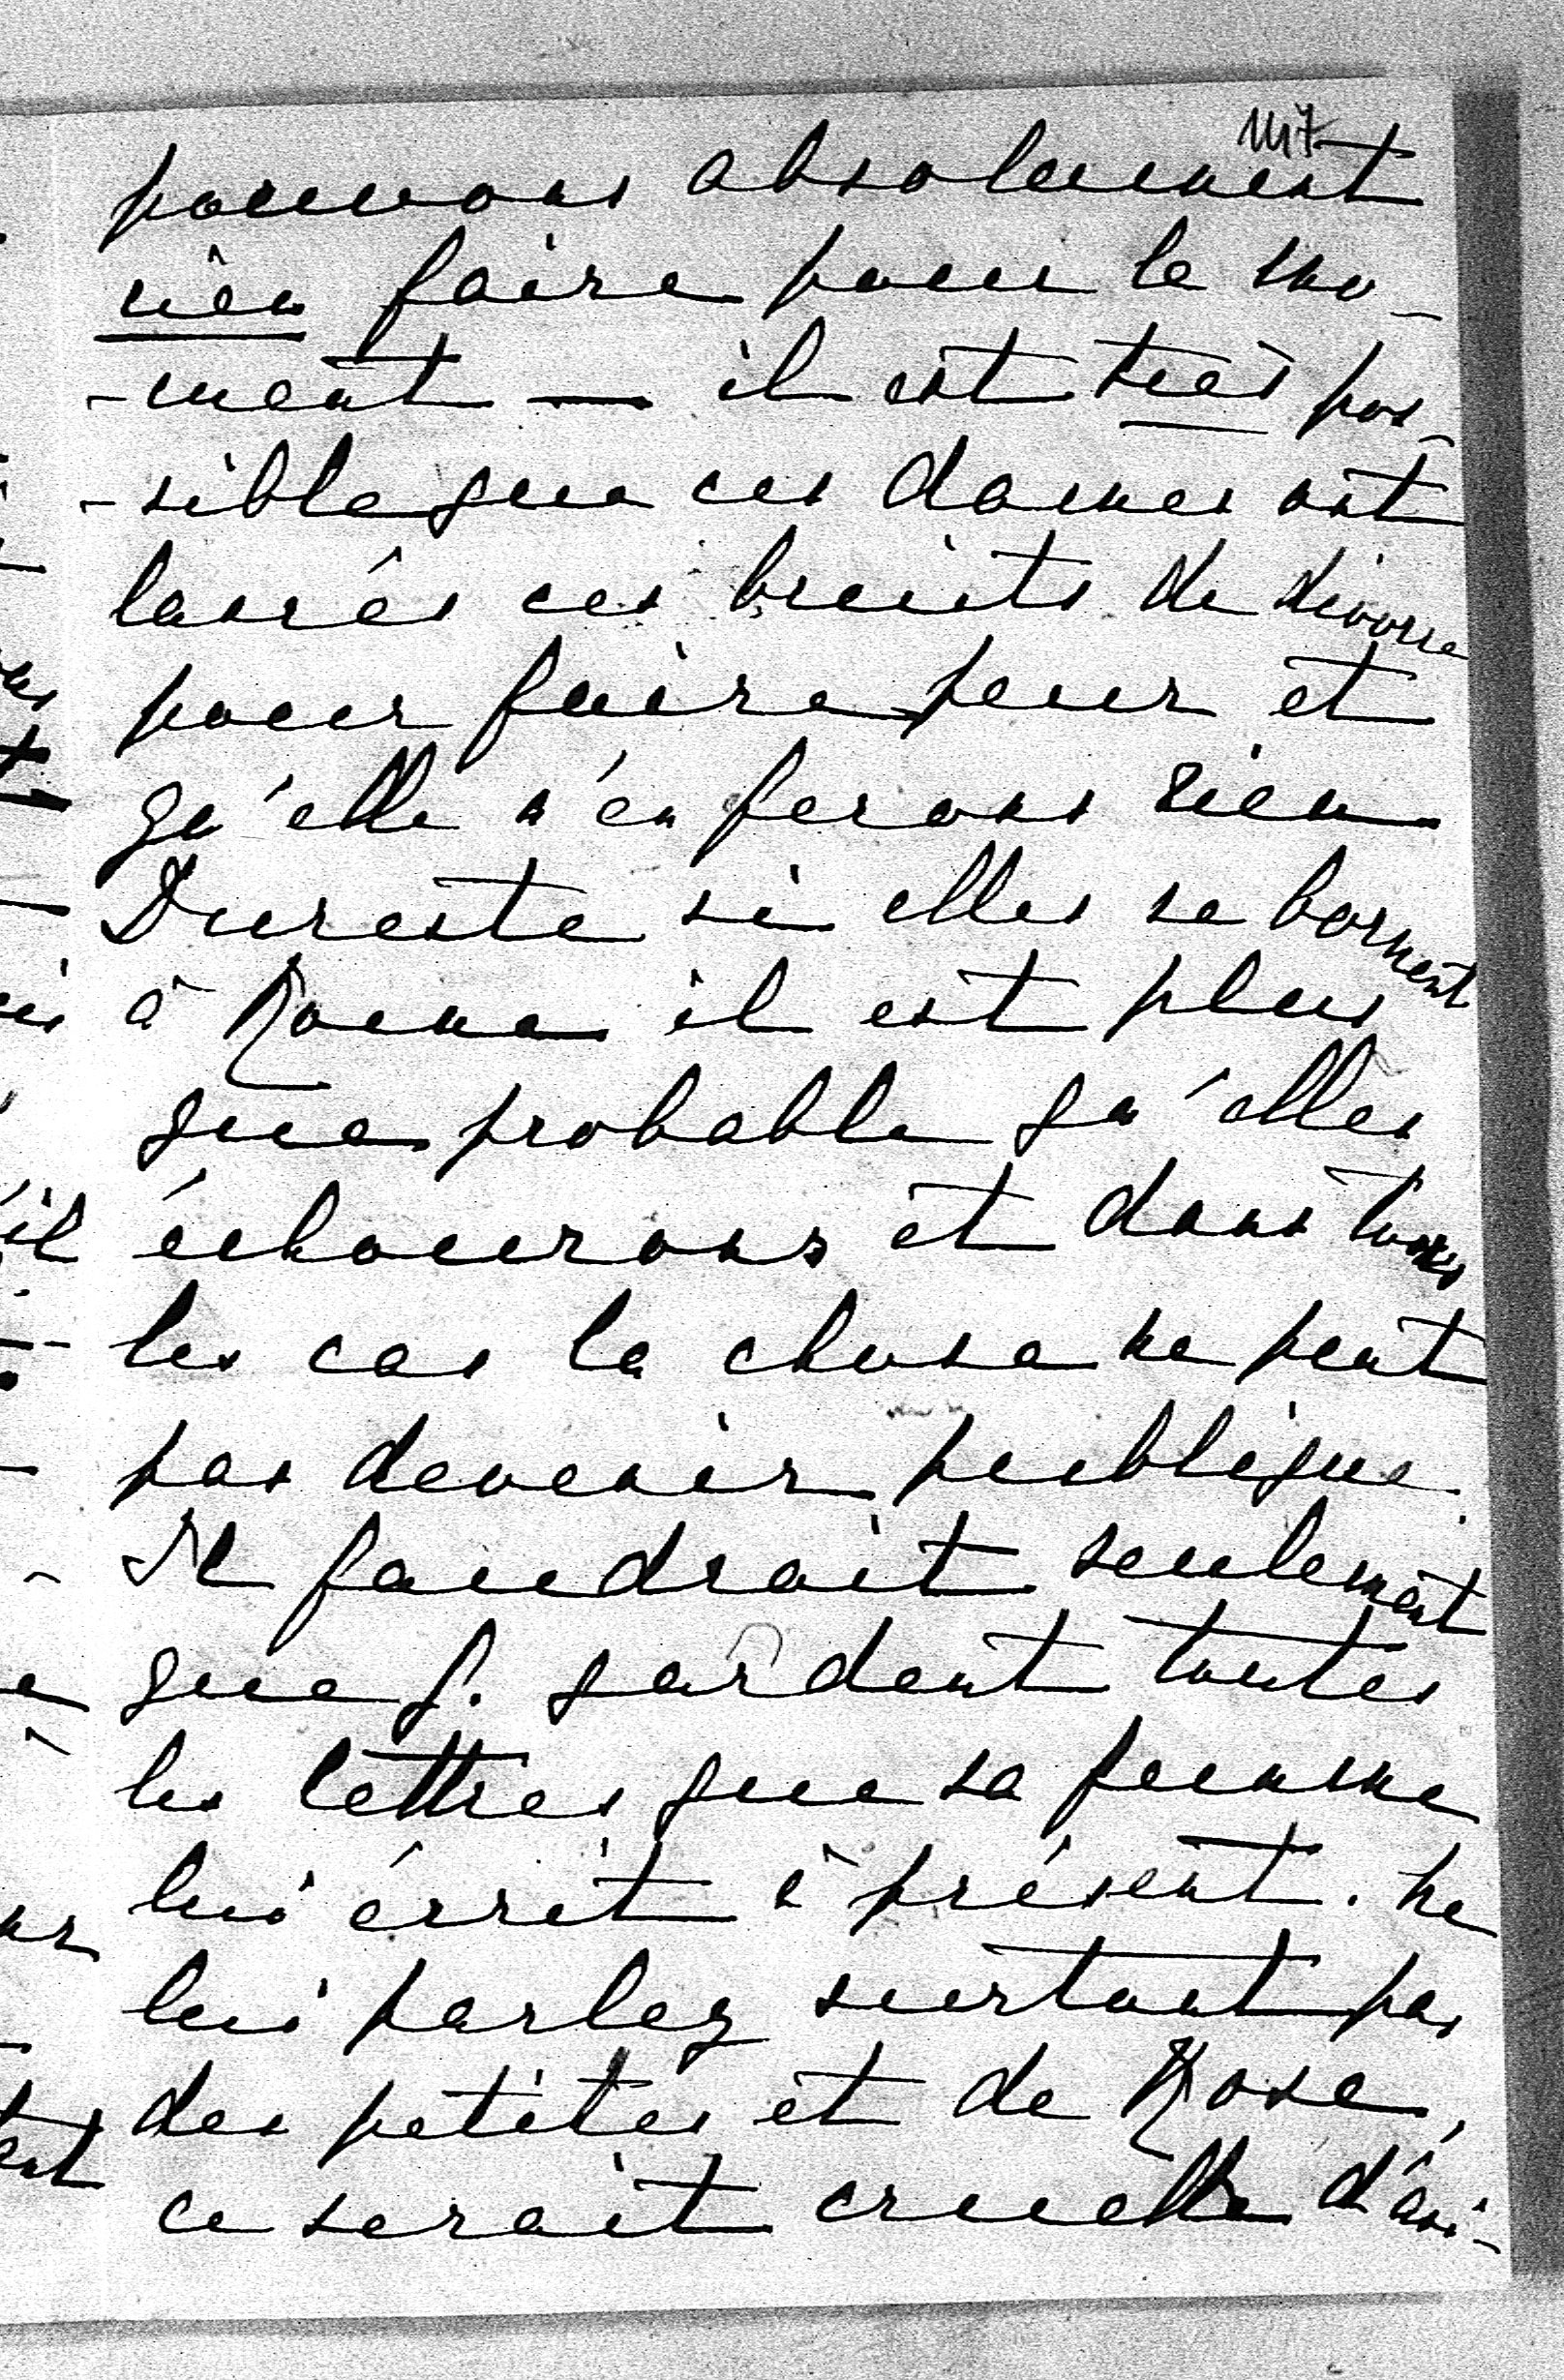 1117
pouvons absolument
rien faire pour le mo-
-ment — il est très pos-
-sible que ces dames ont
lancés ces bruits de divorce
pour faire peur et
qu'elle n'en ferons rien
Dureste si elles se bornent
à Rome il est plus
que probable qu'elles
échouerons et dans tous
les cas la chose ne peut
pas devenir publique.
Il faudrait seulement
que f. gardent toutes
les lettres que sa femme
lui écrit à présent. Ne
lui parlez surtout pas
des petites et de Rose,
ce serait cruelle